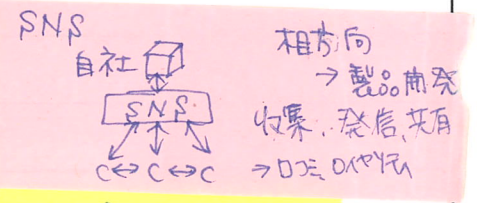 SNS
自社
SNS
C⇔C⇔C
相方向
→製品開発
収集、発信、共有
→口コミ、ロイヤリティ